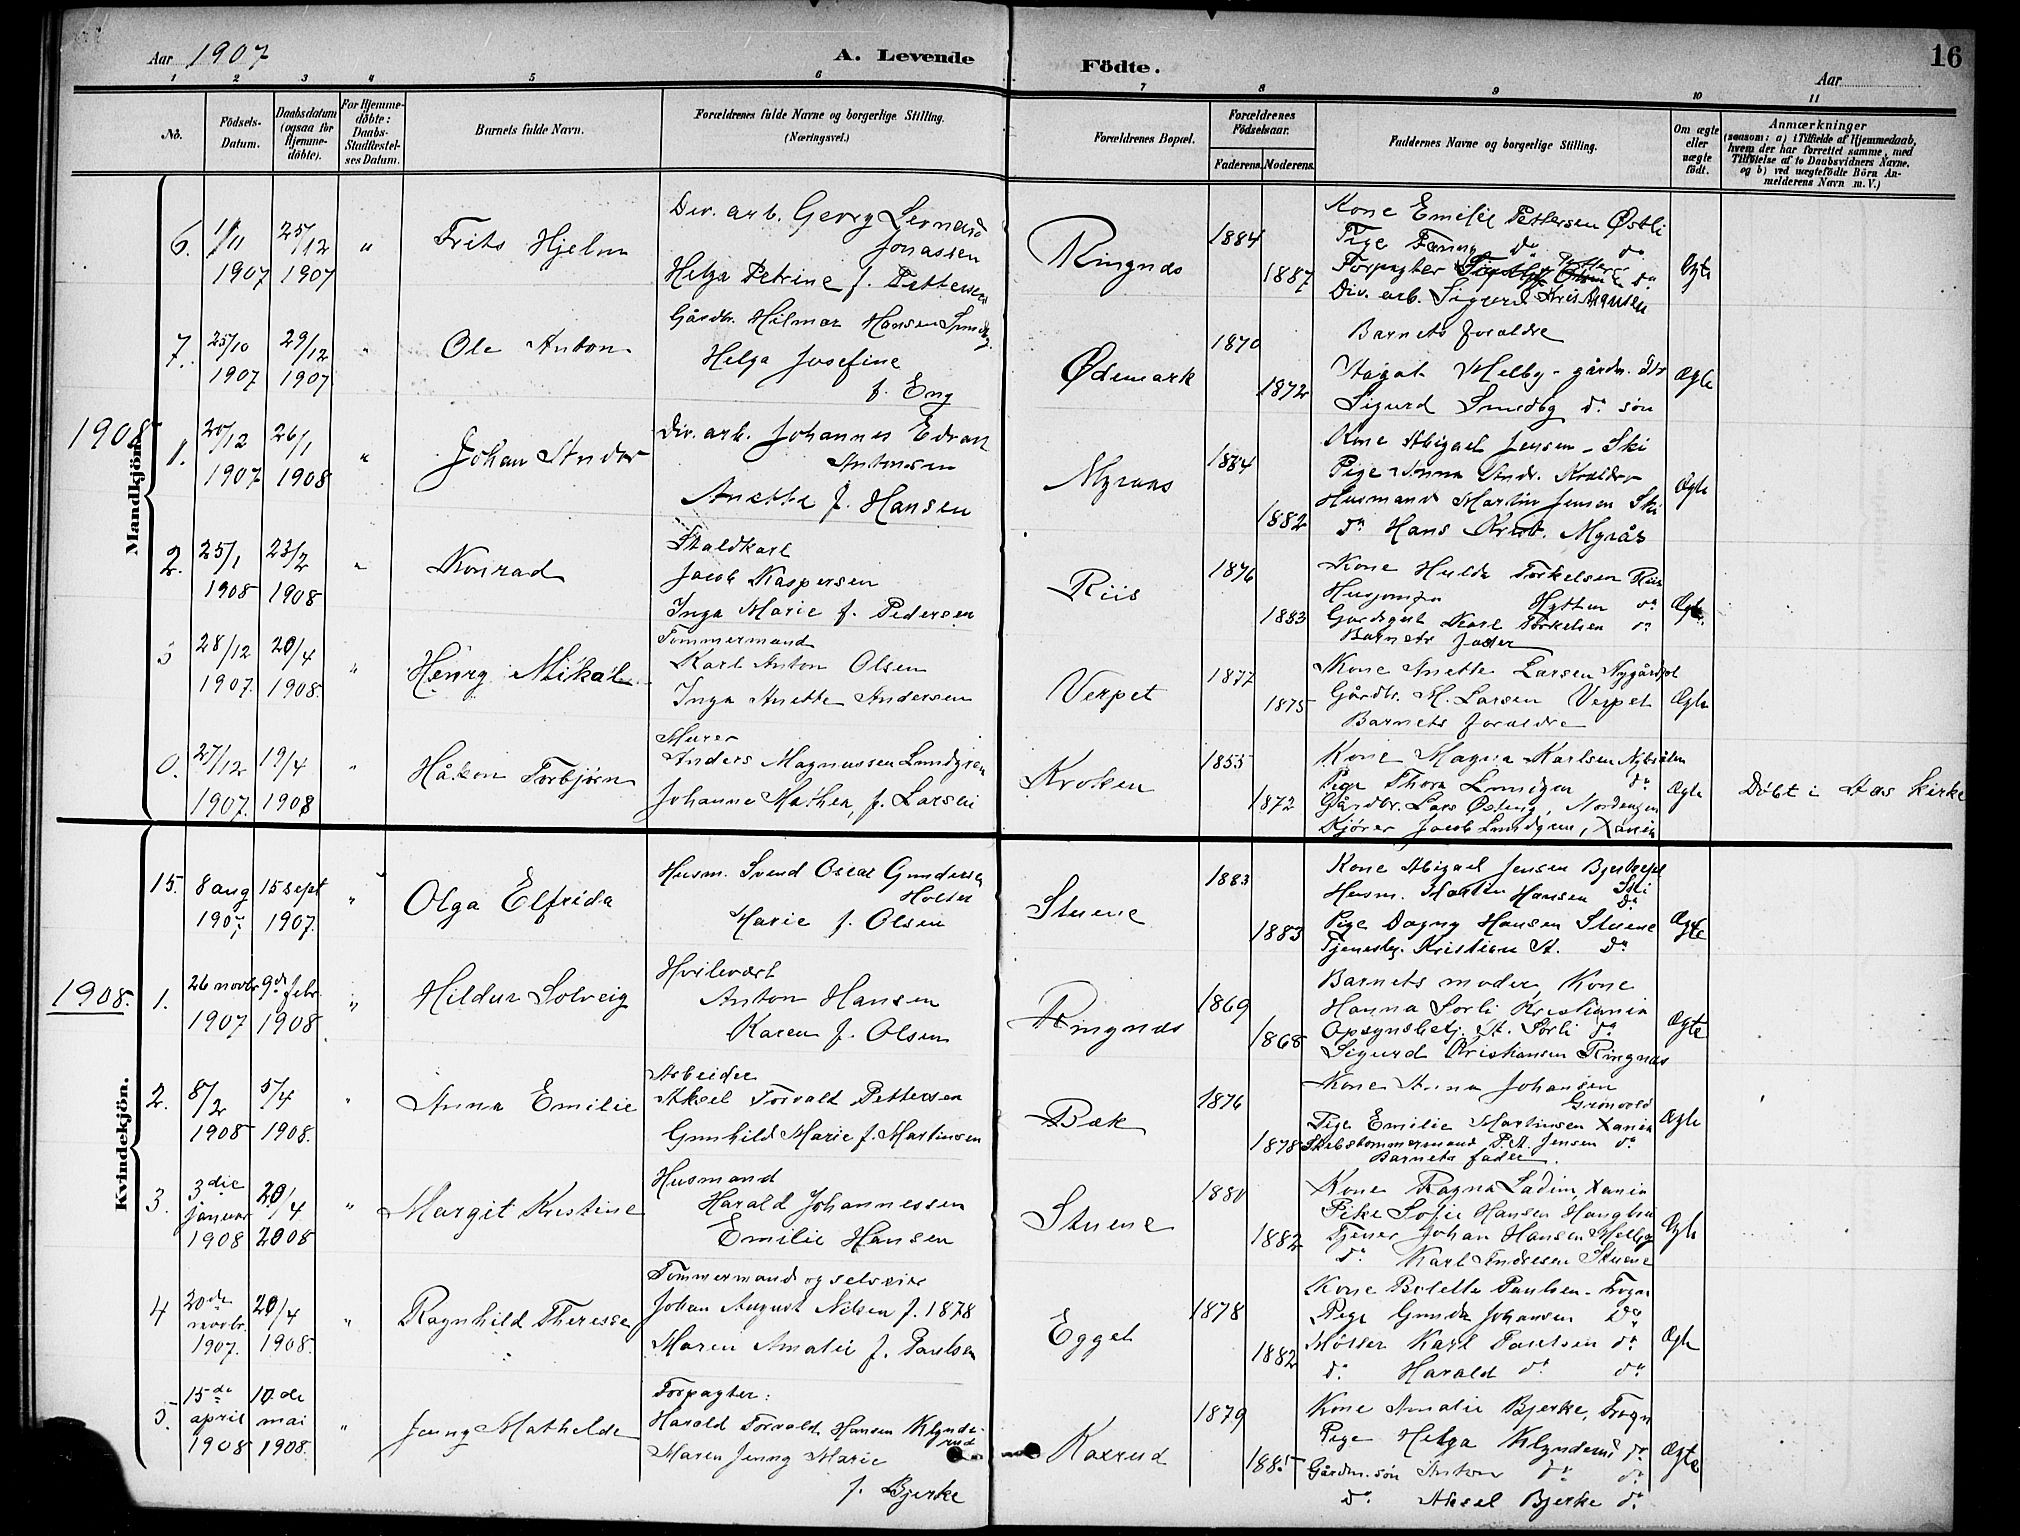 Aar 1907
A. Levende
Födte.
Aar
16
1 2 3 4 5 6 7 8 9 10 11
No.
Födsels-Datum.
Daabsdatum (ogsaa for Hjemme-döbte).
For Hjemme-döbte: Daabs-Stadfæstel-ses Datum.
Barnets fulde Navn.
Forældrenes fulde Navne og borgerlige Stilling.
(Næringsvei.)
Forældrenes Bopæl.
Forældrenes Födselsaar.
Faderens. Moderens.
Faddernes Navne og borgerlige Stilling.
Om ægte eller uægte födt.
Anmærkninger
(saasom: a) i Tilfælde af Hjemmedaab,
hvem der har forrettet samme, med
Tilföielse af to Daabsvidners Navne,
og b) ved uægtefödte Börn An-
melderens Navn m. V.)
Mandkjön.
6. 1/11 1907 25/12 1907 " Frits Hjelm
Div. arb. Georg
Jonassen
Helga Petrine f. Pettersen
Ringnæs
1884
1887
Kone Emilie Pettersen Østli
Pige Fanny do do
Forpagter do
Div. arb. Sigurd Kristiansen
Ægte
7. 25/10 1907 29/12 1907 " Ole Anton
Gårdbr. Hilmar Hansen Smedby
Helga Josefine
f. Eng
Ødemark
1870
1872
Barnets forældre
Melby - gårdm.
Sigurd Smedby do søn
Ægte
1908
1. 20/12 1907 26/1 1908 " Johan
Div. arb. Johannes Edvart
Antonsen
Anette f. Hansen
Myraas
1884
1882
Kone Abigael Jensen - Ski
Pige Anna
Husmand Martin Jensen Ski
do Hans Krist. Myrås
Ægte
2. 25/1 1908 23/2 1908 " Konrad
Staldkarl
Jacob Kaspersen
Inga Marie f. Pedersen
Riis
1876
1883
Kone Hulda Torkelsen Riis
Husjomfru Hytten do
Gardsgut Karl Torkelsen do
Barnets fader
Ægte
28/12 1907. 20/4 1908. " Henry Mikal
Tømmermand
Karl Anton Olsen
Inga Anette Andersen
Verpet
1877
1875
Kone Anette Larsen
Gårdbr. M. Larsen Verpet
Barnets forældre
Ægte
27/12 1907. 19/4 1908 " Håkon Torbjørn
Murer
Anders Magnussen Lundgren
Johanne Mathea, f. Larsen
Kroken
1855
1872
Kone Magna Karlsen
Pige Thora Lundgren do
Gårdbr. Lars Østeng, Nordengen
Kjører Jacob Lundgren, Xania
Ægte
Döbt i Aas kirke
Kvindekjön.
15. 8 aug 1907 15 sept 1907. " Olga Elfrida
Husm. Svend Oscar Gundersen
Holter
Marie f. Olsen
Stuene
1883
1883
Kone Abigael Jensen
Husm. Martin Hansen do
Pige Dagny Hansen Stuene
Tjenestg. Kristian A. do
Ægte
1908.
1. 26 novbr 1907 9de febr. 1908 " Hildur Solveig
Hvilevært
Anton Hansen
Karen f. Olsen
Ringnæs
1869
1868
Barnets moder, Kone
Hanna Sørli Kristiania
Opsynsbetj. A. Sørli do
Sigurd Kristiansen Ringnæs
Ægte
2. 8/2 1908 5/4 1908. " Anna Emilie
Arbeider
Aksel Torvald Pettersen
Gunhild Marie f. Martinsen
Bæk
1876
1878
Kone Anna Johansen
Grønvold
Pige Emilie Martinsen Xania
Skibstømmermand P. A. Jensen do
Barnets fader.
Ægte
3. 3die januar 1908 20/4 2008 " Margit Kristine
Husmand
Harald Johannessen
Emilie Hansen
Stuene
1880
1882
Kone Ragna Ladim, Xania
Pike Sofie Hansen
Tjener Johan Hansen Melby
do Karl Andresen Stuene
Ægte
4 20de novbr. 1907. 20/4 1908. " Ragnhild Theresse
Tømmermand og selveier
Johan August Nilsen f. 1878
Maren Amalie f. Paulsen
Egget
1878
1882
Kone Bolette Paulsen - Frogn
Pige Gunda Johansen do
Møller Karl Paulsen do
do Harald do do
Ægte
5. 15de april 1908 10.de mai 1908. " Jenny Mathilde
Forpagter:
Harald Torvald Hansen Klynde-
rud
Maren Jenny Marie
f. Bjerke
Kaxrud
1879
1885
Kone Amalie Bjerke, Frogn
Pige Helga Klynderud do
Gårdm. søn Anton do do
do Aksel Bjerke do
Ægte